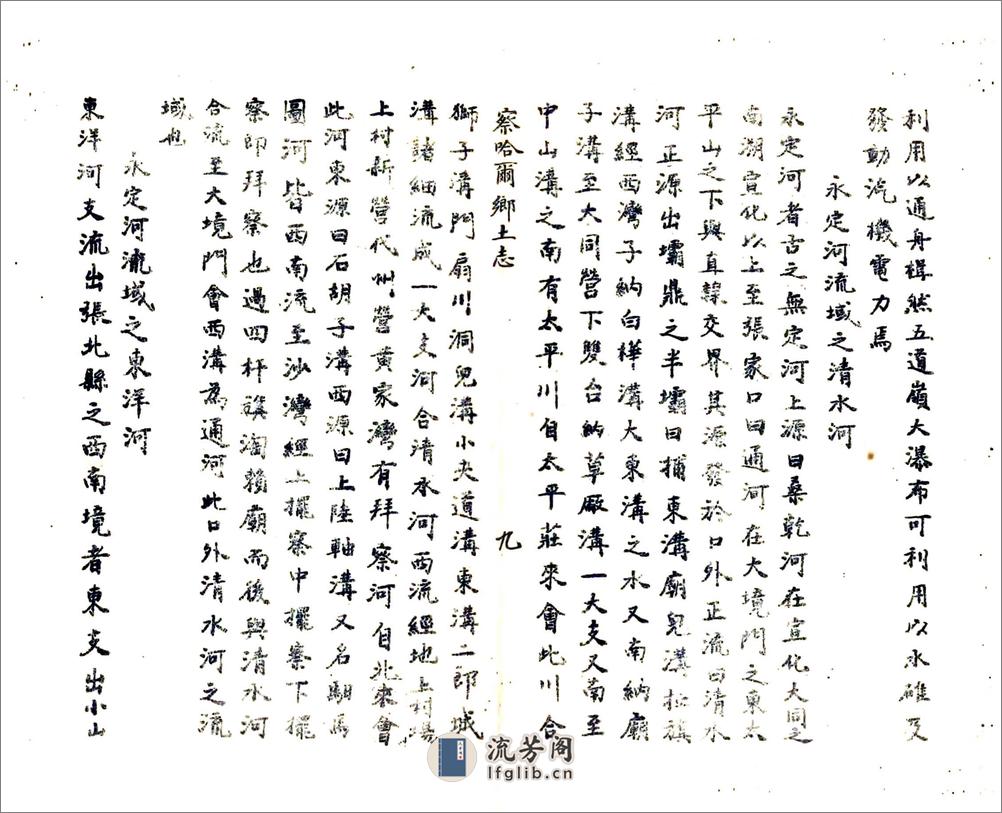 利用以通舟楫然五道嶺大瀑布可利用以水碓及
發動汽機電力焉
永定河流域之清水河
永定河者古之無定河上源曰桑乾河在宣化大同之
南溯宣化以上至張家口曰通河在大境門之東太
平山之下與直隸交界其源發於口外正流曰清水
河正源出壩鼎之半壩曰捕東溝廟兒溝拉旗
溝經西灣子納白樺溝大東溝之水又南納廟
子溝至大同營下雙台納草廠溝一大支又南至
中山溝之南有太平川自太平莊來會此川合
察哈爾鄉土志
九
獅子溝門扇川洞兒溝小夾道溝東溝二郎城
溝諸細流成一大支河合清水河西流經地上村場
上村新營代州營黃家灣有拜察河自北來會
此河東源曰石胡子溝西源曰上陸軸溝又名駙馬
圖河皆西南流至沙灣經上擺察中擺察下擺
察即拜察也過四杆旗淘賴廟而後與清水河
合流至大境門會西溝為通河此口外清水河之流
域也
永定河流域之東洋河
東洋河支流出張北縣之西南境者東支出小山
流芳阁
lfglib.cn